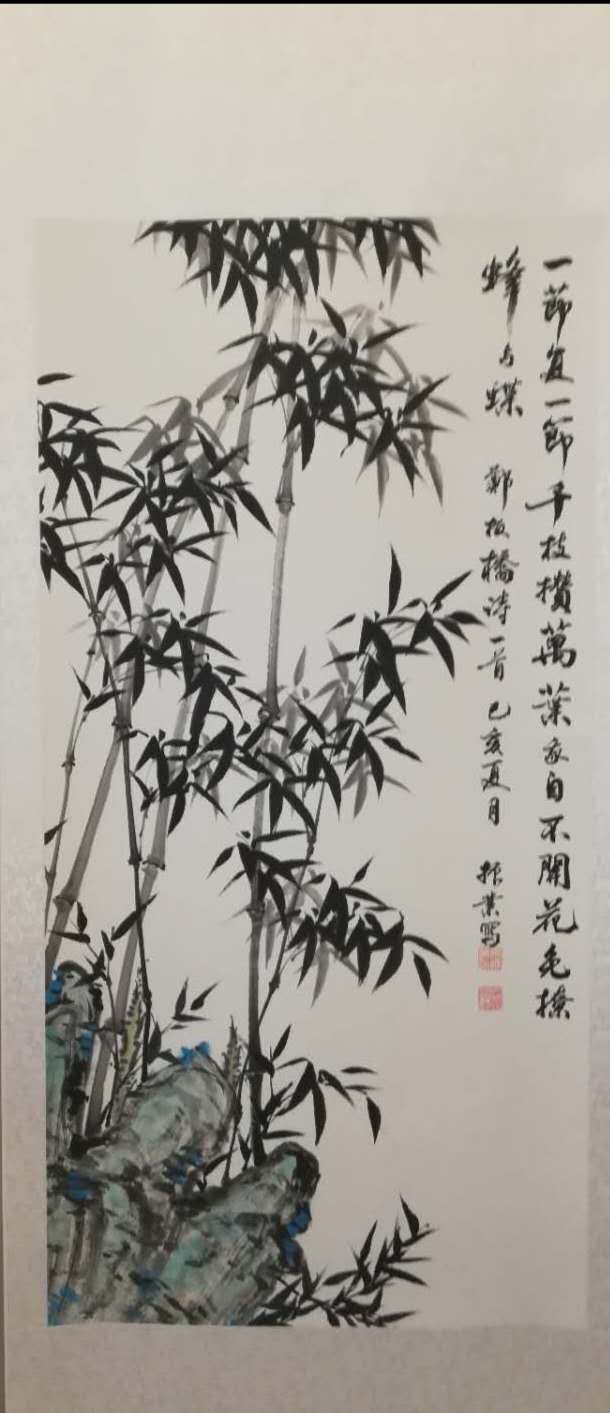 一節復一節千枝攒萬葉我自不開花免撩
蜂与蝶 鄭板橋诗一首 己亥夏月 振業寫